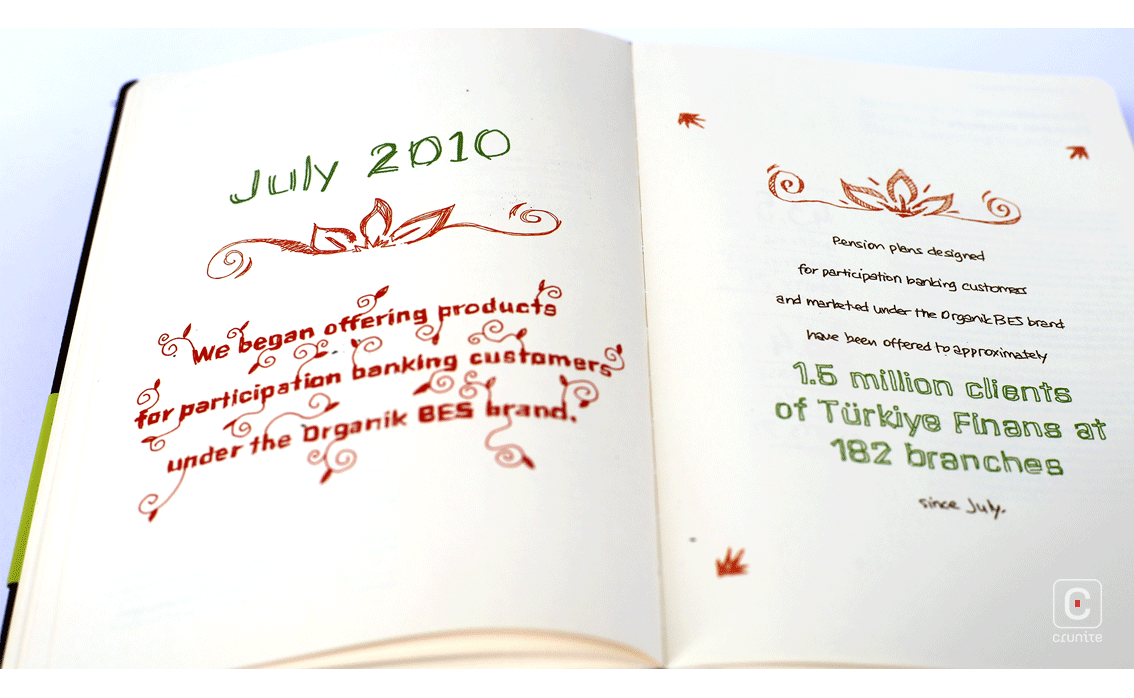 July 2010
We began offering products
for participation banking customers
under the Organik BES brand.
Pension plans designed
for participation banking customers
and marketed under the Organik BES brand
have been offered to approximately
1.5 million clients
of Türkiye Finans at
182 branches
since July.
C
crunite